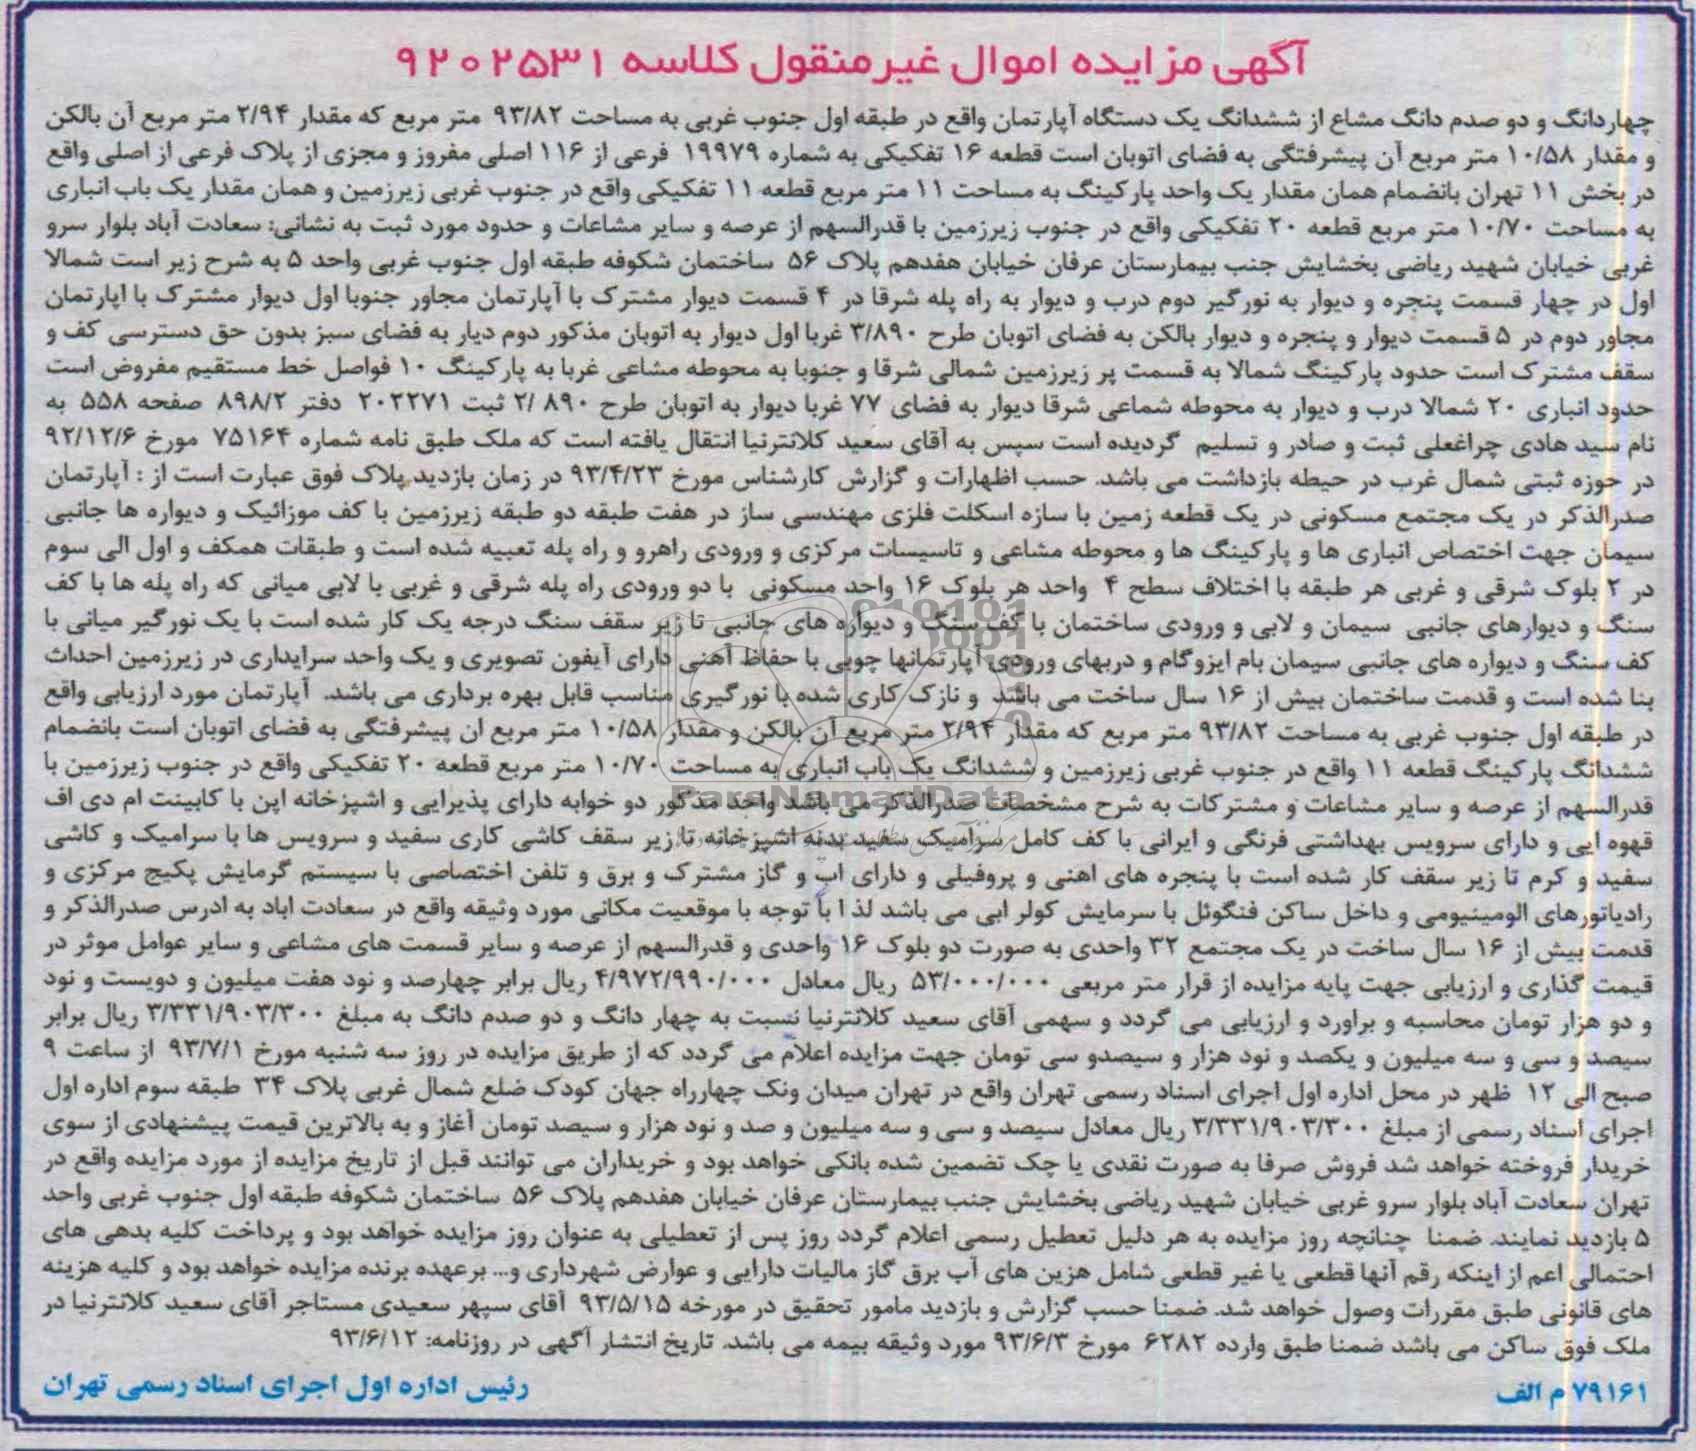 آگهی مزایده اموال غیرمنقول کلاسه ۹۲۰۲۵۳۱
چهاردانگ و دو صدم دانگ مشاع از ششدانگ یک دستگاه آپارتمان واقع در طبقه اول جنوب غربی به مساحت ۹۳/۸۲ متر مربع که مقدار ۲/۹۴ متر مربع آن بالکن
و مقدار ۱۰/۵۸ متر مربع آن پیشرفتگی به فضای اتوبان است قطعه ۱۶ تفکیکی به شماره ۱۹۹۷۹ فرعی از ۱۱۶ اصلی مفروز و مجزی از پلاک فرعی از اصلی واقع
در بخش ۱۱ تهران بانضمام همان مقدار یک واحد پارکینگ به مساحت ۱۱ متر مربع قطعه ۱۱ تفکیکی واقع در جنوب غربی زیرزمین و همان مقدار یک باب انباری
به مساحت ۱۰/۷۰ متر مربع قطعه ۲۰ تفکیکی واقع در جنوب زیرزمین با قدرالسهم از عرصه و سایر مشاعات و حدود مورد ثبت به نشانی: سعادت آباد بلوار سرو
غربی خیابان شهید ریاضی بخشایش جنب بیمارستان عرفان خیابان هفدهم پلاک ۵۶ ساختمان شکوفه طبقه اول جنوب غربی واحد ۵ به شرح زیر است شمالا
اول در چهار قسمت پنجره و دیوار به نورگیر دوم درب و دیوار به راه پله شرقا در ۴ قسمت دیوار مشترک با آپارتمان مجاور جنوبا اول دیوار مشترک با اپارتمان
مجاور دوم در ۵ قسمت دیوار و پنجره و دیوار بالکن به فضای اتوبان طرح ۳/۸۹۰ غربا اول دیوار به اتوبان مذکور دوم دیار به فضای سبز بدون حق دسترسی کف و
سقف مشترک است حدود پارکینگ شمالا به قسمت پر زیرزمین شمالی شرقا و جنوبا به محوطه مشاعی غربا به پارکینگ ۱۰ فواصل خط مستقیم مفروض است
حدود انباری ۲۰ شمالا درب و دیوار به محوطه شماعی شرقا دیوار به فضای ۷۷ غربا دیوار به اتوبان طرح ۸۹۰ /۲ ثبت ۲۰۲۲۷۱ دفتر ۸۹۸/۲ صفحه ۵۵۸ به
نام سید هادی چراغعلی ثبت و صادر و تسلیم گردیده است سپس به آقای سعید کلانترنیا انتقال یافته است که ملک طبق نامه شماره ۷۵۱۶۴ مورخ ۹۲/۱۲/۶
در حوزه ثبتی شمال غرب در حیطه بازداشت می باشد. حسب اظهارات و گزارش کارشناس مورخ ۹۳/۴/۲۳ در زمان بازدید پلاک فوق عبارت است از : آپارتمان
صدرالذکر در یک مجتمع مسکونی در یک قطعه زمین با سازه اسکلت فلزی مهندسی ساز در هفت طبقه دو طبقه زیرزمین با کف موزائیک و دیواره ها جانبی
سیمان جهت اختصاص انباری ها و پارکینگ ها و محوطه مشاعی و تاسیسات مرکزی و ورودی راهرو و راه پله تعبیه شده است و طبقات همکف و اول الی سوم
در ۲ بلوک شرقی و غربی هر طبقه با اختلاف سطح ۴ واحد هر بلوک ۱۶ واحد مسکونی با دو ورودی راه پله شرقی و غربی با لابی میانی که راه پله ها با کف
سنگ و دیوارهای جانبی سیمان و لابی و ورودی ساختمان با کف سنگ و دیواره های جانبی تا زیر سقف سنگ درجه یک کار شده است با یک نورگیر میانی با
کف سنگ و دیواره های جانبی سیمان بام ایزوگام و دربهای ورودی آپارتمانها چوبی با حفاظ آهنی دارای آیفون تصویری و یک واحد سرایداری در زیرزمین احداث
بنا شده است و قدمت ساختمان بیش از ۱۶ سال ساخت می باشد و نازک کاری شده با نورگیری مناسب قابل بهره برداری می باشد. آپارتمان مورد ارزیابی واقع
در طبقه اول جنوب غربی به مساحت ۹۳/۸۲ متر مربع که مقدار ۲/۹۴ متر مربع آن بالکن و مقدار ۱۰/۵۸ متر مربع ان پیشرفتگی به فضای اتوبان است بانضمام
ششدانگ پارکینگ قطعه ۱۱ واقع در جنوب غربی زیرزمین و ششدانگ یک باب انباری به مساحت ۱۰/۷۰ متر مربع قطعه ۲۰ تفکیکی واقع در جنوب زیرزمین با
قدرالسهم از عرصه و سایر مشاعات و مشترکات به شرح مشخصات صدرالذکر می باشد واحد مذکور دو خوابه دارای پذیرایی و اشپزخانه اپن با کابینت ام دی اف
قهوه ایی و دارای سرویس بهداشتی فرنگی و ایرانی با کف کامل سرامیک سفید بدنه اشپزخانه تا زیر سقف کاشی کاری سفید و سرویس ها با سرامیک و کاشی
سفید و کرم تا زیر سقف کار شده است با پنجره های اهنی و پروفیلی و دارای اب و گاز مشترک و برق و تلفن اختصاصی با سیستم گرمایش پکیج مرکزی و
رادیاتورهای الومینیومی و داخل ساکن فنگوئل با سرمایش کولر ابی می باشد لذا با توجه با موقعیت مکانی مورد وثیقه واقع در سعادت اباد به ادرس صدرالذکر و
قدمت بیش از ۱۶ سال ساخت در یک مجتمع ۳۲ واحدی به صورت دو بلوک ۱۶ واحدی و قدرالسهم از عرصه و سایر قسمت های مشاعی و سایر عوامل موثر در
قیمت گذاری و ارزیابی جهت پایه مزایده از قرار متر مربعی ۵۳/۰۰۰/۰۰۰ ریال معادل ۴/۹۷۲/۹۹۰/۰۰۰ ریال برابر چهارصد و نود هفت میلیون و دویست و نود
و دو هزار تومان محاسبه و براورد و ارزیابی می گردد و سهمی آقای سعید کلانترنیا نسبت به چهار دانگ و دو صدم دانگ به مبلغ ۳/۳۳۱/۹۰۳/۳۰۰ ریال برابر
سیصد و سی و سه میلیون و یکصد و نود هزار و سیصدو سی تومان جهت مزایده اعلام می گردد که از طریق مزایده در روز سه شنبه مورخ ۹۳/۷/۱ از ساعت ۹
صبح الی ۱۲ ظهر در محل اداره اول اجرای اسناد رسمی تهران واقع در تهران میدان ونک چهارراه جهان کودک ضلع شمال غربی پلاک ۳۴ طبقه سوم اداره اول
اجرای اسناد رسمی از مبلغ ۳/۳۳۱/۹۰۳/۳۰۰ ریال معادل سیصد و سی و سه میلیون و صد و نود هزار و سیصد تومان آغاز و به بالاترین قیمت پیشنهادی از سوی
خریدار فروخته خواهد شد فروش صرفا به صورت نقدی یا چک تضمین شده بانکی خواهد بود و خریداران می توانند قبل از تاریخ مزایده از مورد مزایده واقع در
تهران سعادت آباد بلوار سرو غربی خیابان شهید ریاضی بخشایش جنب بیمارستان عرفان خیابان هفدهم پلاک ۵۶ ساختمان شکوفه طبقه اول جنوب غربی واحد
۵ بازدید نمایند. ضمنا چنانچه روز مزایده به هر دلیل تعطیل رسمی اعلام گردد روز پس از تعطیلی به عنوان روز مزایده خواهد بود و پرداخت کلیه بدهی های
احتمالی اعم از اینکه رقم آنها قطعی یا غیر قطعی شامل هزین های آب برق گاز مالیات دارایی و عوارض شهرداری و... برعهده برنده مزایده خواهد بود و کلیه هزینه
های قانونی طبق مقررات وصول خواهد شد. ضمنا حسب گزارش و بازدید مامور تحقیق در مورخه ۹۳/۵/۱۵ آقای سپهر سعیدی مستاجر آقای سعید کلانترنیا در
ملک فوق ساکن می باشد ضمنا طبق وارده ۶۲۸۲ مورخ ۹۳/۶/۳ مورد وثیقه بیمه می باشد. تاریخ انتشار آگهی در روزنامه: ۹۳/۶/۱۲
۷۹۱۶۱ م الف
رئیس اداره اول اجرای اسناد رسمی تهران
ParsNamadData